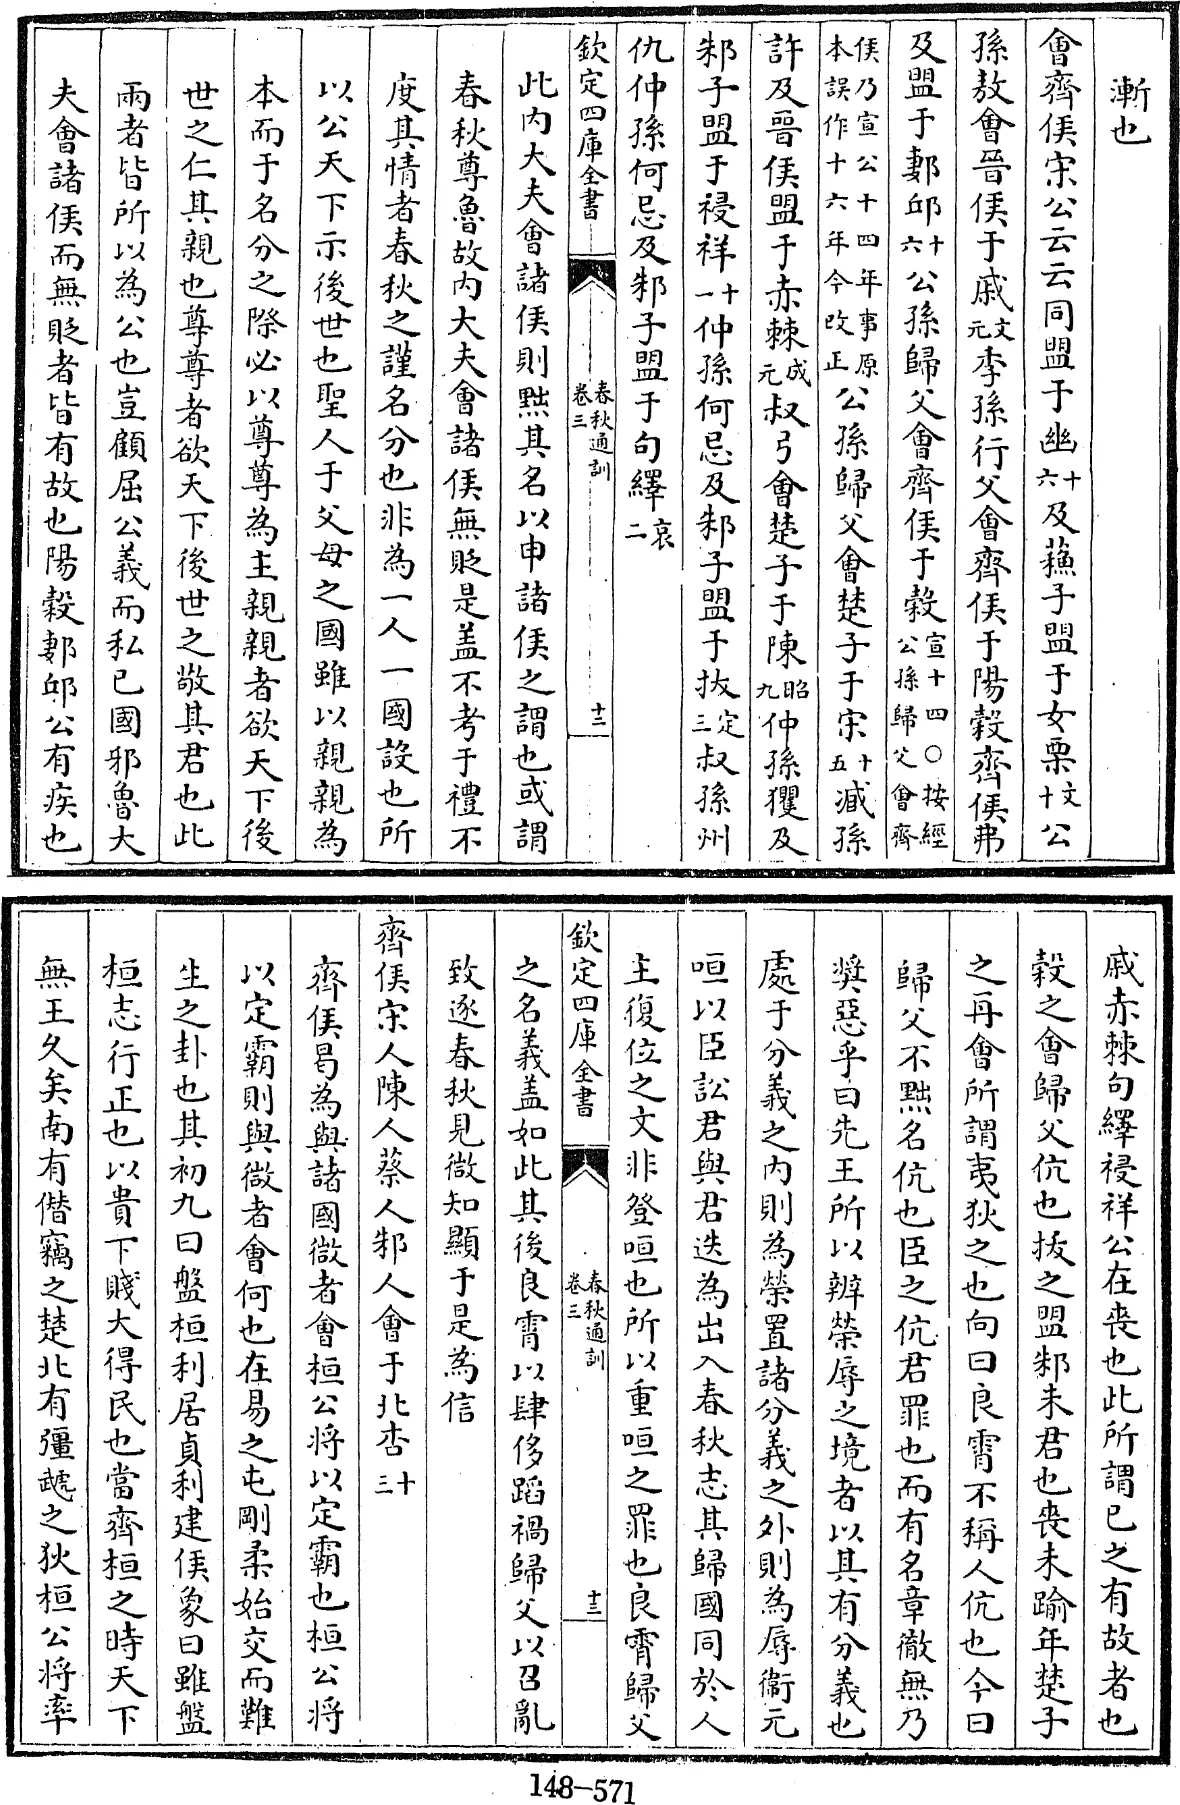 漸也
會齊侯宋公云云同盟于幽十六及蘓子盟于女栗文十公
孫敖會晉侯于戚文元季孫行父會齊侯于陽穀齊侯弗
及盟于郪邱十六公孫歸父會齊侯于穀宣十四○按經公孫歸父會齊
侯乃宣公十四年事原本誤作十六年今改正公孫歸父會楚子于宋十五臧孫
許及晉侯盟于赤棘成元叔弓會楚子于陳昭九仲孫貜及
邾子盟于祲祥十一仲孫何忌及邾子盟于拔定三叔孫州
仇仲孫何忌及邾子盟于句繹哀二
欽定四庫全書 春秋通訓卷三 十二
此内大夫會諸侯則黜其名以申諸侯之謂也或謂
春秋尊魯故内大夫會諸侯無貶是盖不考于禮不
度其情者春秋之謹名分也非為一人一國設也所
以公天下示後世也聖人于父母之國雖以親親為
本而于名分之際必以尊尊為主親親者欲天下後
世之仁其親也尊尊者欲天下後世之敬其君也此
兩者皆所以為公也豈顧屈公義而私已國邪魯大
夫會諸侯而無貶者皆有故也陽穀郪邱公有疾也
戚赤棘句繹祲祥公在喪也此所謂已之有故者也
穀之會歸父伉也拔之盟邾未君也喪未踰年楚子
之再會所謂夷狄之也向曰良霄不稱人伉也今曰
歸父不黜名伉也臣之伉君罪也而有名章徹無乃
奬惡乎曰先王所以辨榮辱之境者以其有分義也
處于分義之内則為榮置諸分義之外則為辱衞元
咺以臣訟君與君迭為出入春秋志其歸國同於人
主復位之文非登咺也所以重咺之罪也良霄歸父
欽定四庫全書 春秋通訓卷三 十三
之名義盖如此其後良霄以肆侈蹈禍歸父以召亂
致逐春秋見微知顯于是為信
齊侯宋人陳人蔡人邾人會于北杏十三
齊侯曷為與諸國微者會桓公將以定霸也桓公將
以定霸則與微者會何也在易之屯剛柔始交而難
生之卦也其初九曰盤桓利居貞利建侯象曰雖盤
桓志行正也以貴下賤大得民也當齊桓之時天下
無王久矣南有僭竊之楚北有彊虣之狄桓公將率
148-571